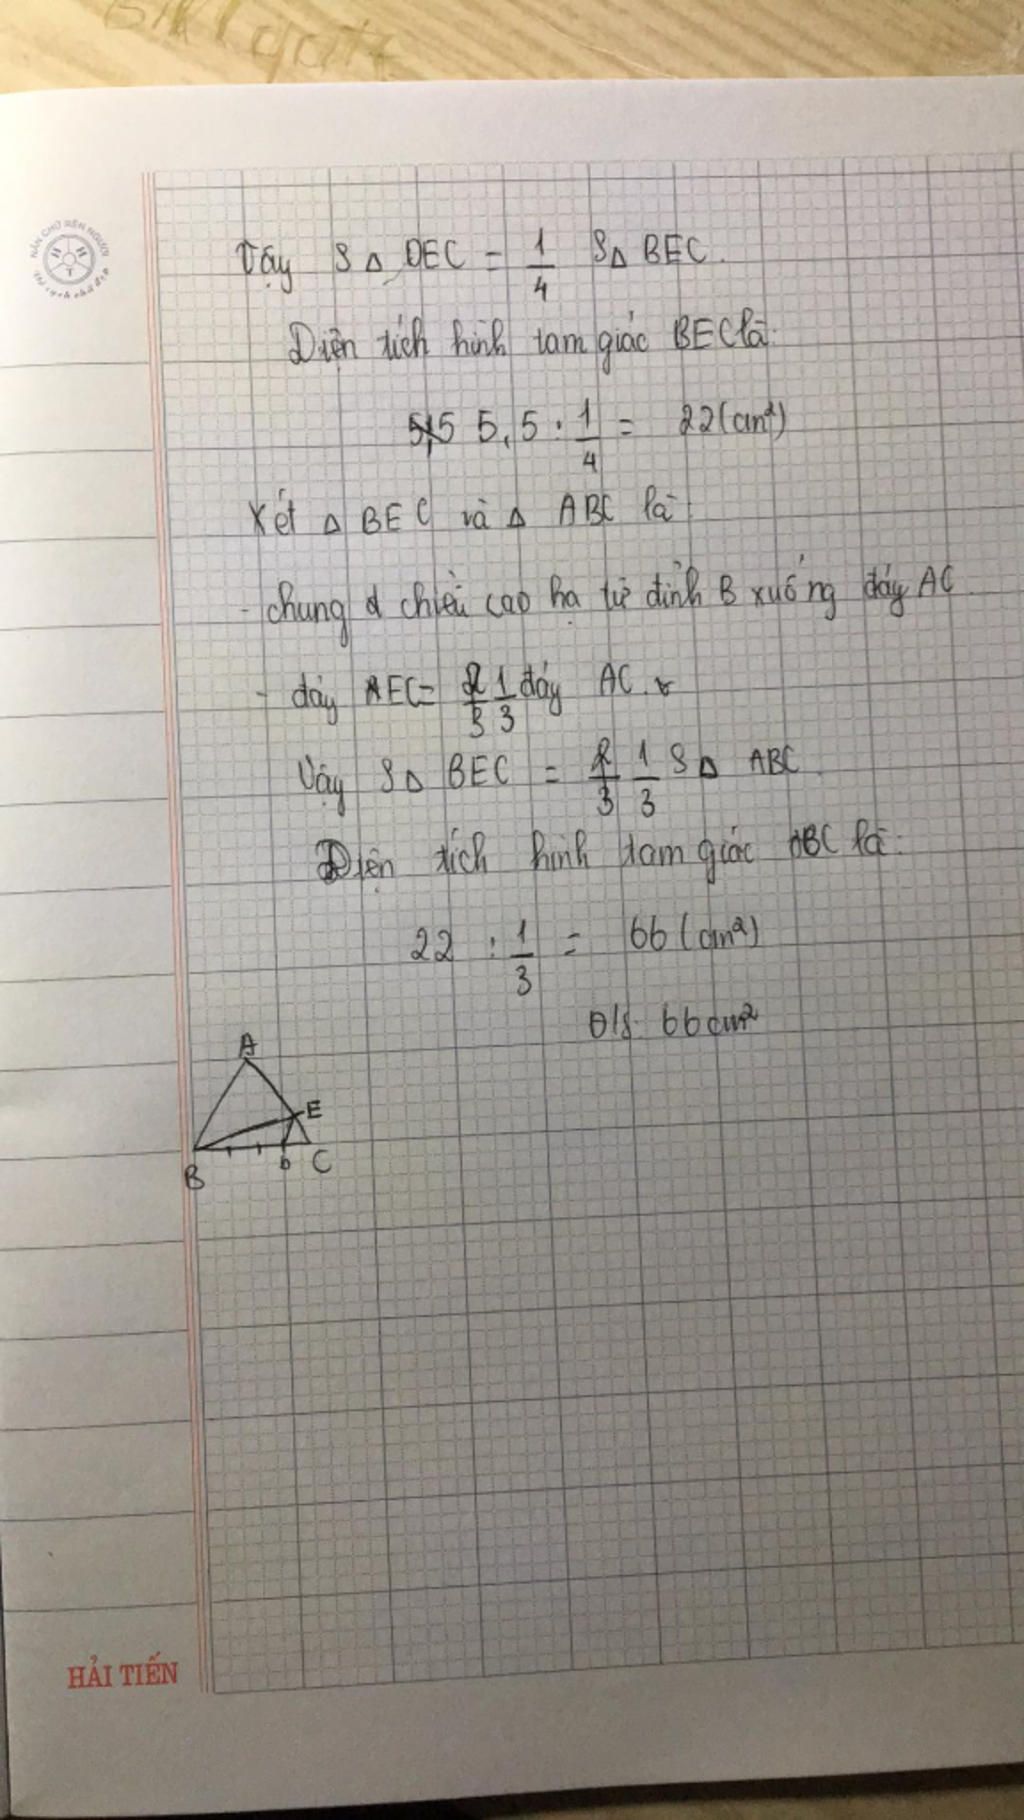 Vậy S△ DEC = 1/4 S△ BEC.
Diện tích hình tam giác BEC là:
5,5 : 1/4 = 22 (cm²)
Xét △ BEC và △ ABC là
- chung chiều cao hạ từ đỉnh B xuống đáy AC.
- đáy EC = 1/3 đáy AC.
Vậy S△ BEC = 1/3 S△ ABC
Diện tích hình tam giác ABC là:
22 : 1/3 = 66 (cm²)
Đ/S: 66 cm²
A
E
B D C
HẢI TIẾN